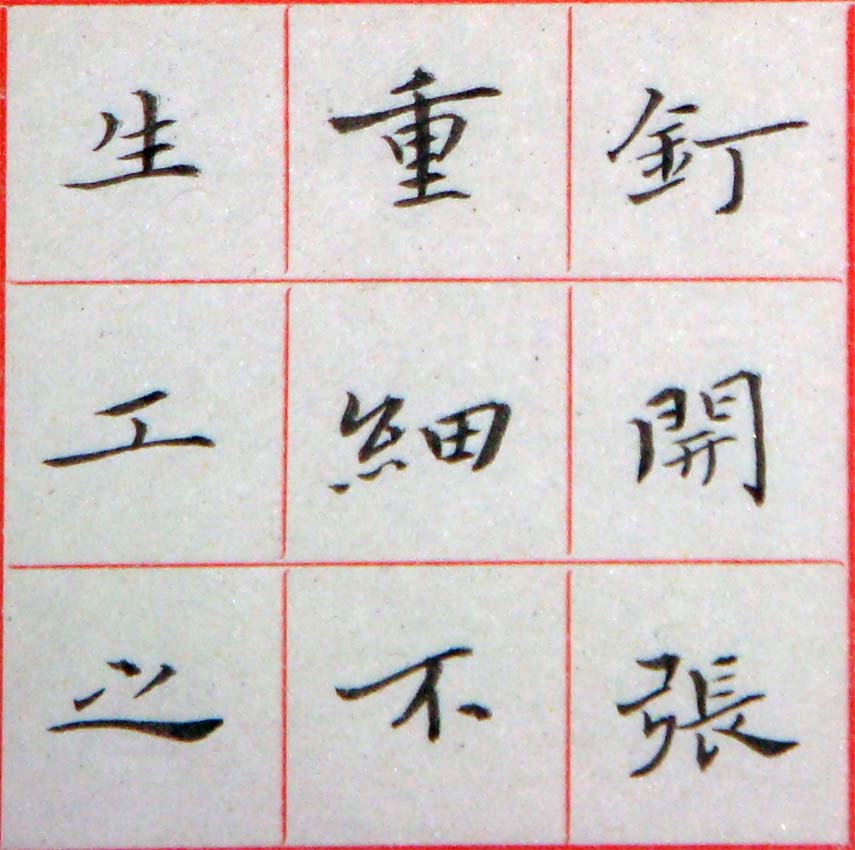 釘開張
重細不
生工之